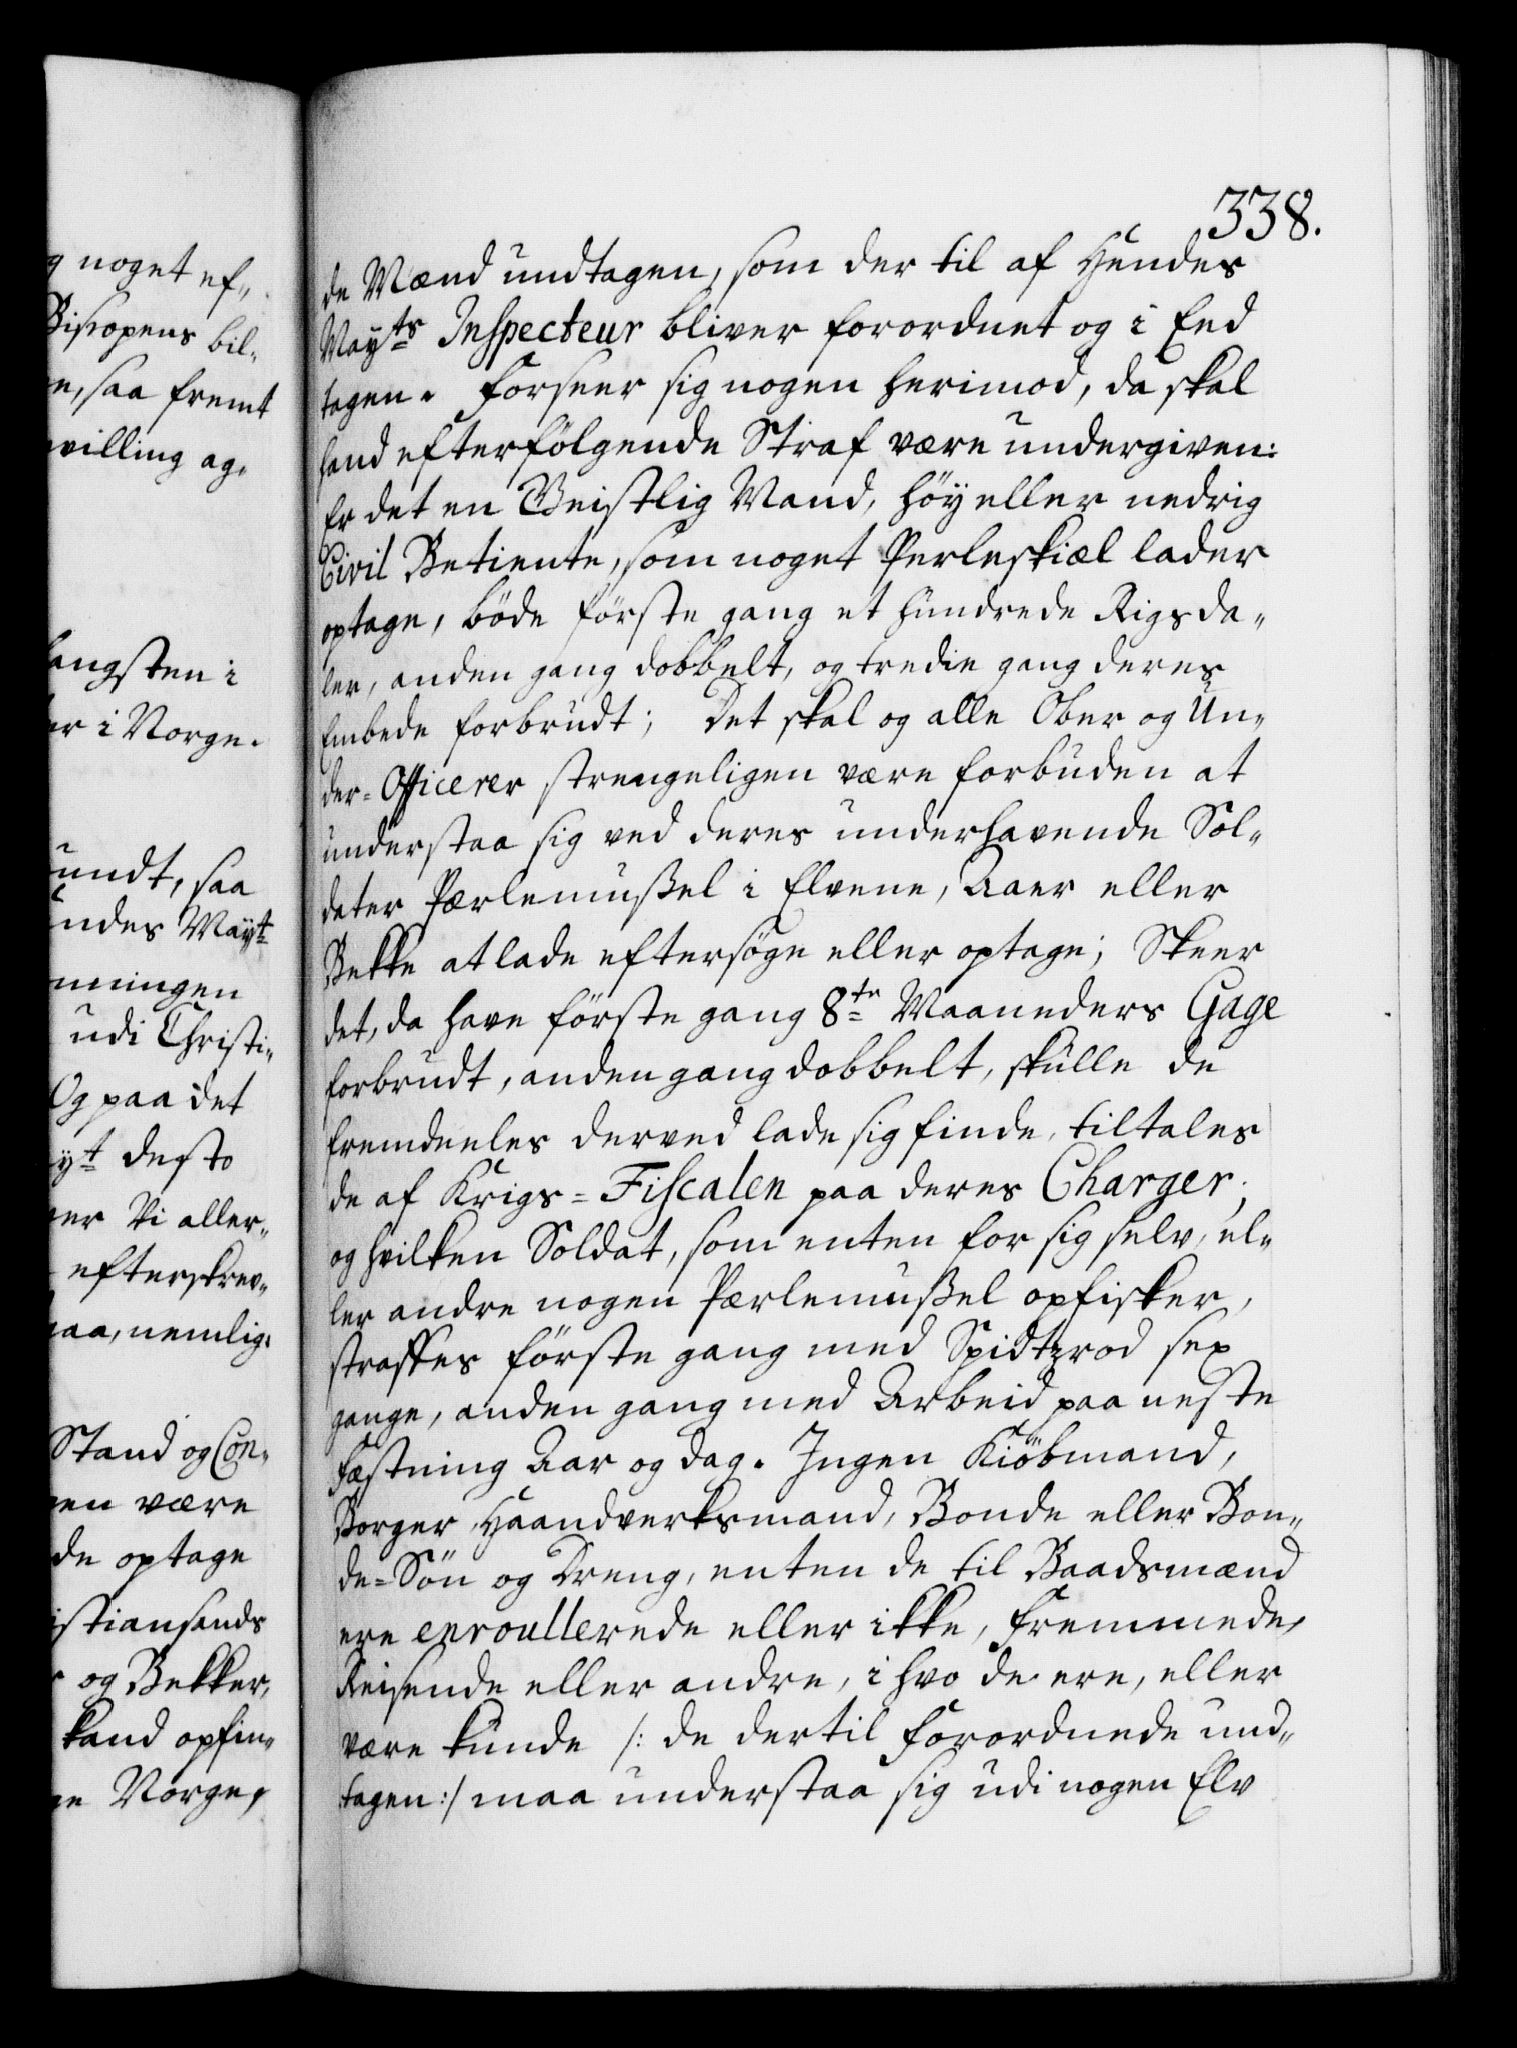 g noget ef„
Bispens bil„
n, saa fremt
villing ag„
langsten i
er i Norge.
undt, saa
ndes Mayt
mningen
udi Christi„
Og paa det
yt desto
er Vi aller„
efterskrev„
aa, nemlig:
Stand og Con„
en være
de optage
istiansands
og Bekker,
kand opfin„
ge Norge,
338.
de Mænd undtagen, som der til af Hendes
Mayts Inspecteur bliver forordnet og i Eed
tagen. Forseer sig nogen herimod, da skal
hand efterfölgende Straf være undergiven:
Er det en Geistlig Mand, höy eller nedrig
Civil Betiente, som noget Perleskiæl lader
optage, böde förste gang et hundrede Rigsda„
ler, anden gang dobbelt, og tredie gang deres
Embede forbrudt; Det skal og alle Ober og Un„
der=Officerer strengeligen være forbuden at
understaa sig ved deres underhavende Sol„
dater Pærlemußel i Elvene, Aaer eller
Bekke at lade eftersöge eller optage; Skeer
det, da have förste gang 8te Maaneders Gage
forbrudt, anden gang dobbelt, skulle de
fremdeeles derved lade sig finde, tiltales
de af Krigs=Fiscalen paa deres Charger;
og hvilken Soldat, som enten for sig selv, el„
ler andre nogen Pærlemußel opfisker,
straffes förste gang med Spidtzrod sex
gange, anden gang med Arbeid paa neste
Fæstning Aar og dag. Ingen Kiöbmand,
Borger, Haandverksmand, Bonde eller Bon„
de=Sön og Dreng, enten de til Baadsmænd
ere enroullerede eller ikke, fremmede,
Reisende eller andre, i hvo de ere, eller
være kunde /: de dertil forordnede und„
tagen :/ maa understaa sig udi nogen Elv